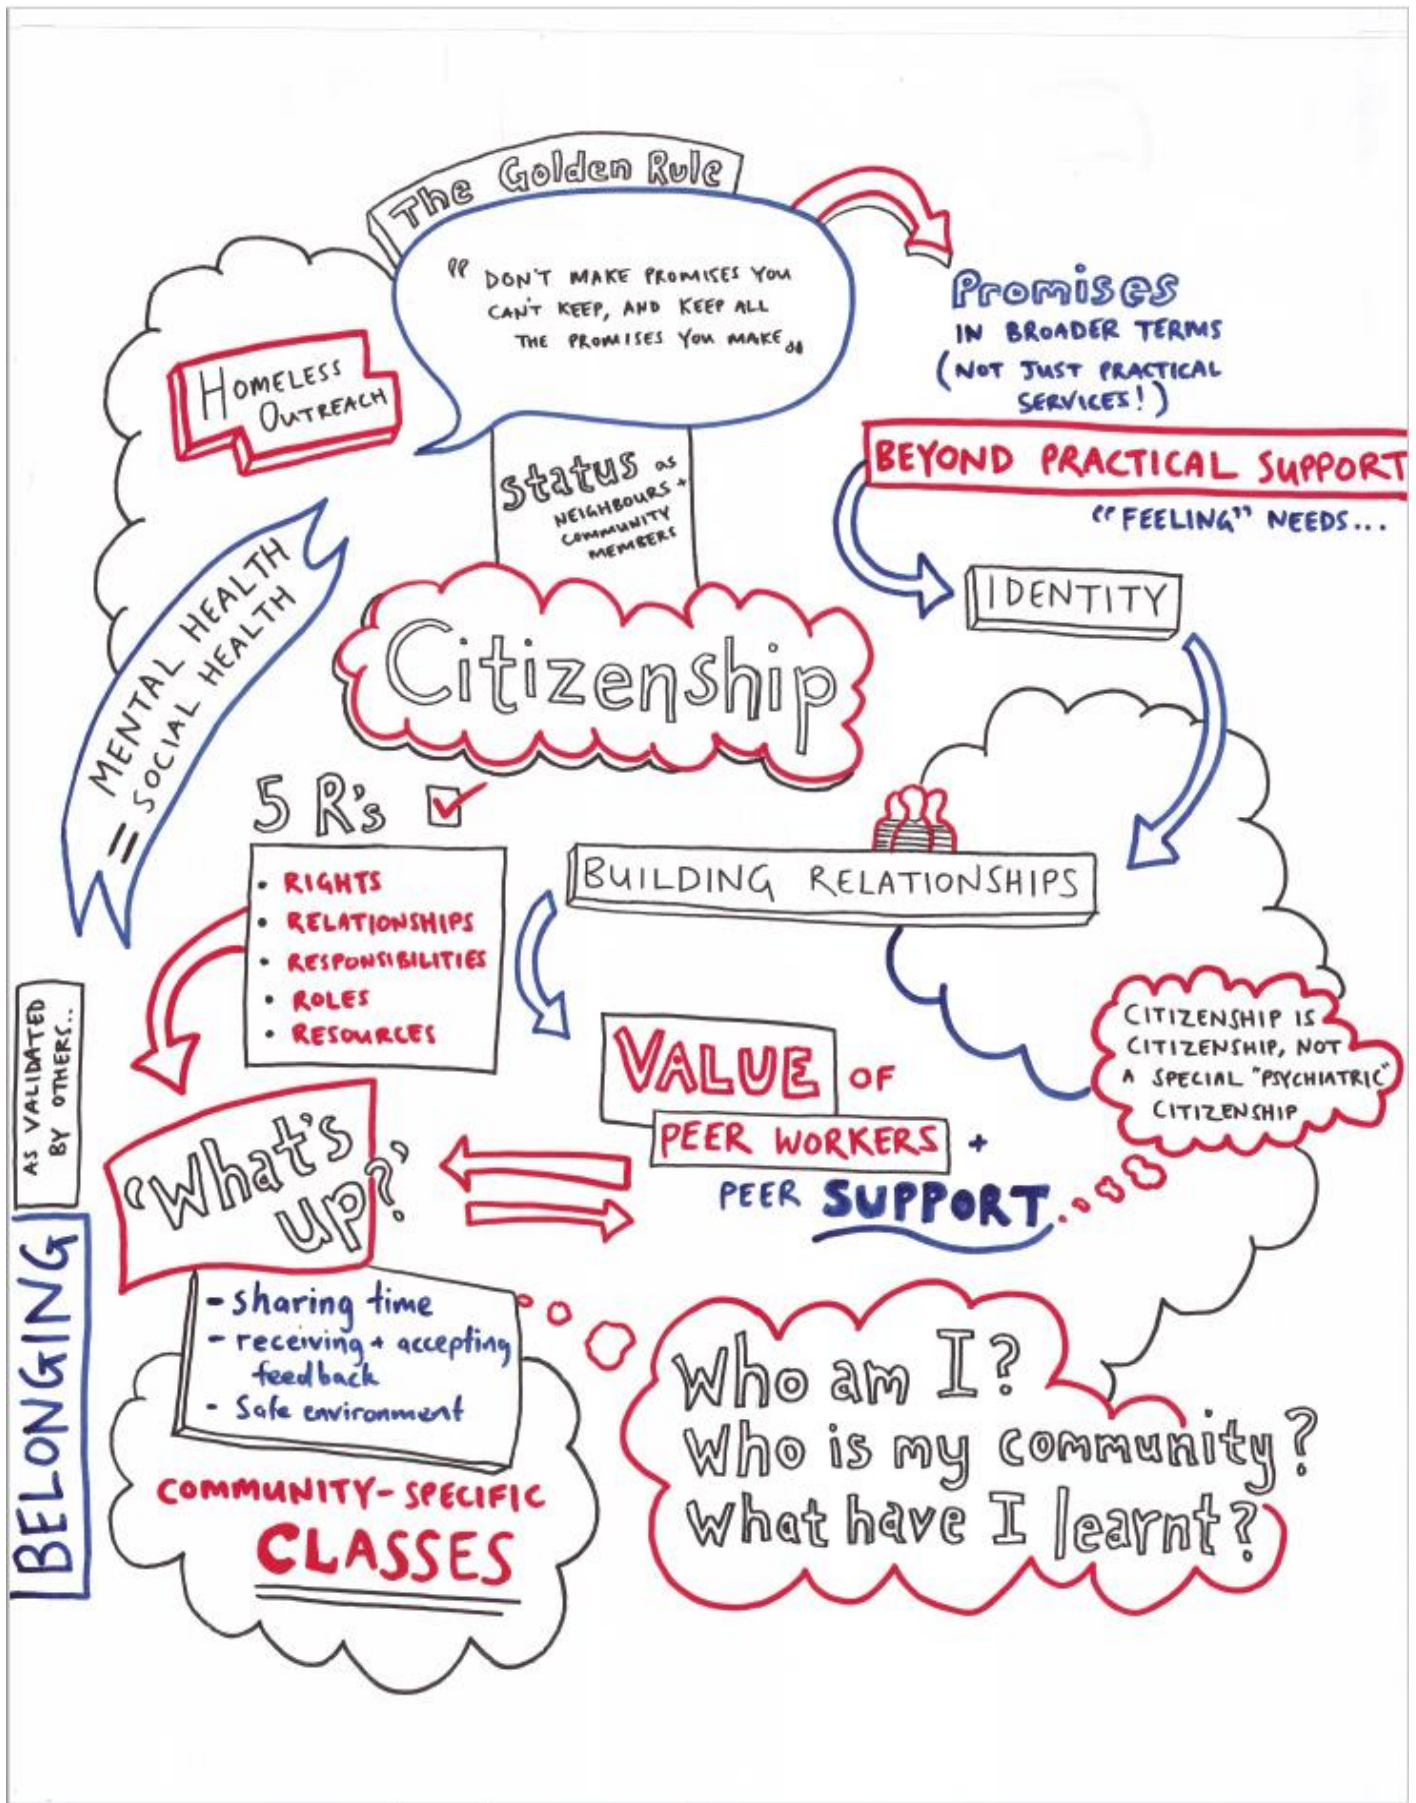 The Golden Rule
"DON'T MAKE PROMISES YOU
CAN'T KEEP, AND KEEP ALL
THE PROMISES YOU MAKE"
Promises
IN BROADER TERMS
(NOT JUST PRACTICAL
SERVICES!)
HOMELESS
OUTREACH
BEYOND PRACTICAL SUPPORT
"FEELING" NEEDS...
status as
NEIGHBOURS +
COMMUNITY
MEMBERS
IDENTITY
MENTAL HEALTH
= SOCIAL HEALTH
Citizenship
5 R's
• RIGHTS
• RELATIONSHIPS
• RESPONSIBILITIES
• ROLES
• RESOURCES
BUILDING RELATIONSHIPS
CITIZENSHIP IS
CITIZENSHIP, NOT
A SPECIAL "PSYCHIATRIC"
CITIZENSHIP
VALUE OF
PEER WORKERS +
PEER SUPPORT...
AS VALIDATED
BY OTHERS..
BELONGING
'What's
up?'
- sharing time
- receiving + accepting
feedback
- Safe environment
COMMUNITY-SPECIFIC
CLASSES
Who am I?
Who is my community?
What have I learnt?